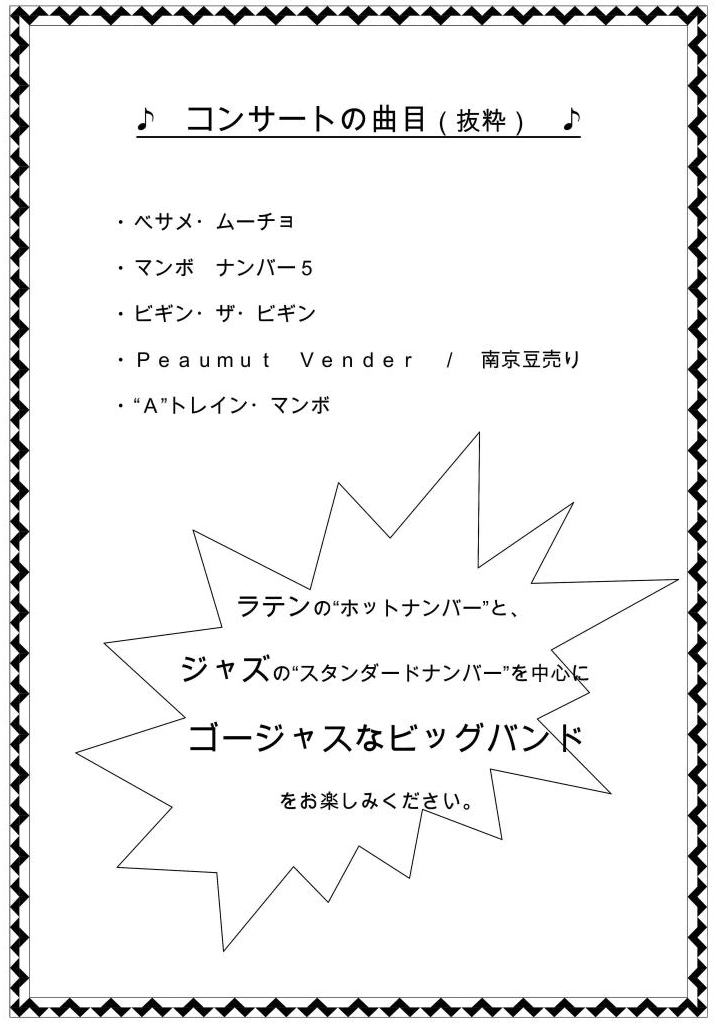 ♪　コンサートの曲目（抜粋）　♪
・ベサメ・ムーチョ
・マンボ　ナンバー５
・ビギン・ザ・ビギン
・Ｐｅａｕｍｕｔ　Ｖｅｎｄｅｒ　／　南京豆売り
・“Ａ”トレイン・マンボ
ラテンの“ホットナンバー”と、
ジャズの“スタンダードナンバー”を中心に
ゴージャスなビッグバンド
をお楽しみください。